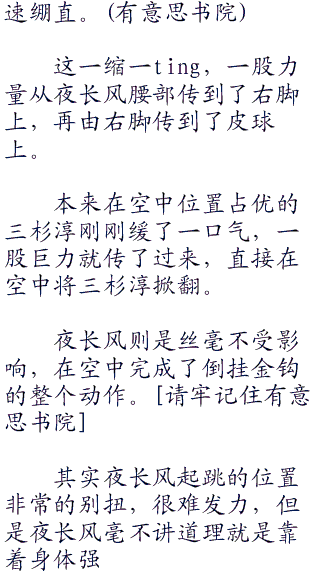 速绷直。(有意思书院)
这一缩一ting，一股力
量从夜长风腰部传到了右脚
上，再由右脚传到了皮球
上。
本来在空中位置占优的
三杉淳刚刚缓了一口气，一
股巨力就传了过来，直接在
空中将三杉淳掀翻。
夜长风则是丝毫不受影
响，在空中完成了倒挂金钩
的整个动作。[请牢记住有意
思书院]
其实夜长风起跳的位置
非常的别扭，很难发力，但
是夜长风毫不讲道理就是靠
着身体强